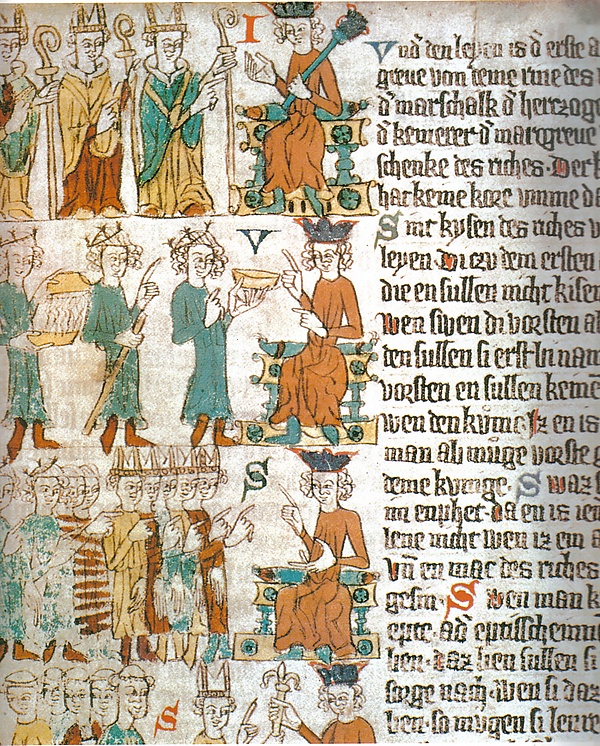 I
Vnd den leyen is d̄ erste a
greue von deme rine des
d̄ marschalk d̄ hertzoge
d̄ kemerer d̄ marcgreue
schenke des riches. Der k
hat keine kore vmme da
V
Sint kysen des riches v
leyen. Di izv dem ersten
die en sullen nicht kisen
wen swen di vorsten al
den sullen si erst In nam
vorsten en sullen keine
wen den kvnic. Iz en is
man ab mvge vorste
deme kvnige. Swaz
S
en is ien
lene nicht wen iz ein a
Vn̄ en mac des riches
gesin. Swen man k
epte. ad̄ eptisschenn
hen. daz hen sullen si
S
sorge nach. Wen si daz
ben. so mvgen si lenre